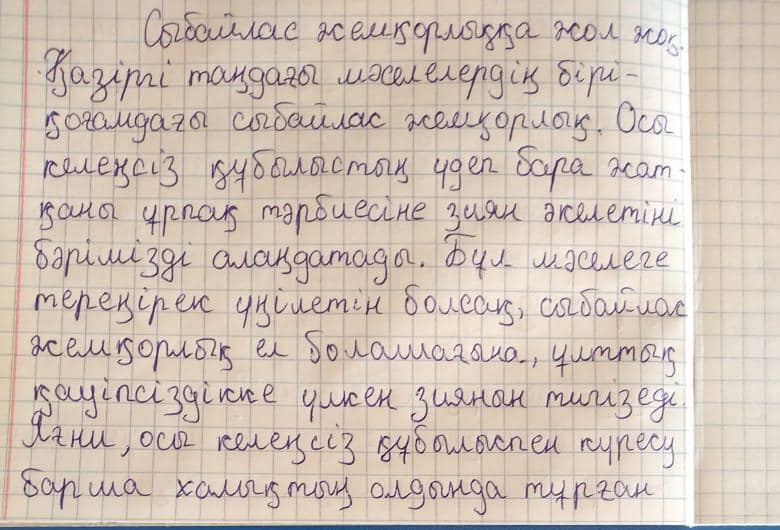 Сыбайлас жемқорлыққа жол жоқ.
Қазіргі таңдағы мәселелердің бірі-
қоғамдағы сыбайлас жемқорлық. Осы
келеңсіз құбылыстың үдеп бара жат-
қаны ұрпақ тәрбиесіне зиян әкелетіні
бәрімізді алаңдатады. Бұл мәселеге
тереңірек үңілетін болсақ, сыбайлас
жемқорлық ел болашағына, ұлттық
қауіпсіздікке үлкен зиянын тигізеді.
Яғни, осы келеңсіз құбылыспен күресу
барша халықтың алдында тұрған